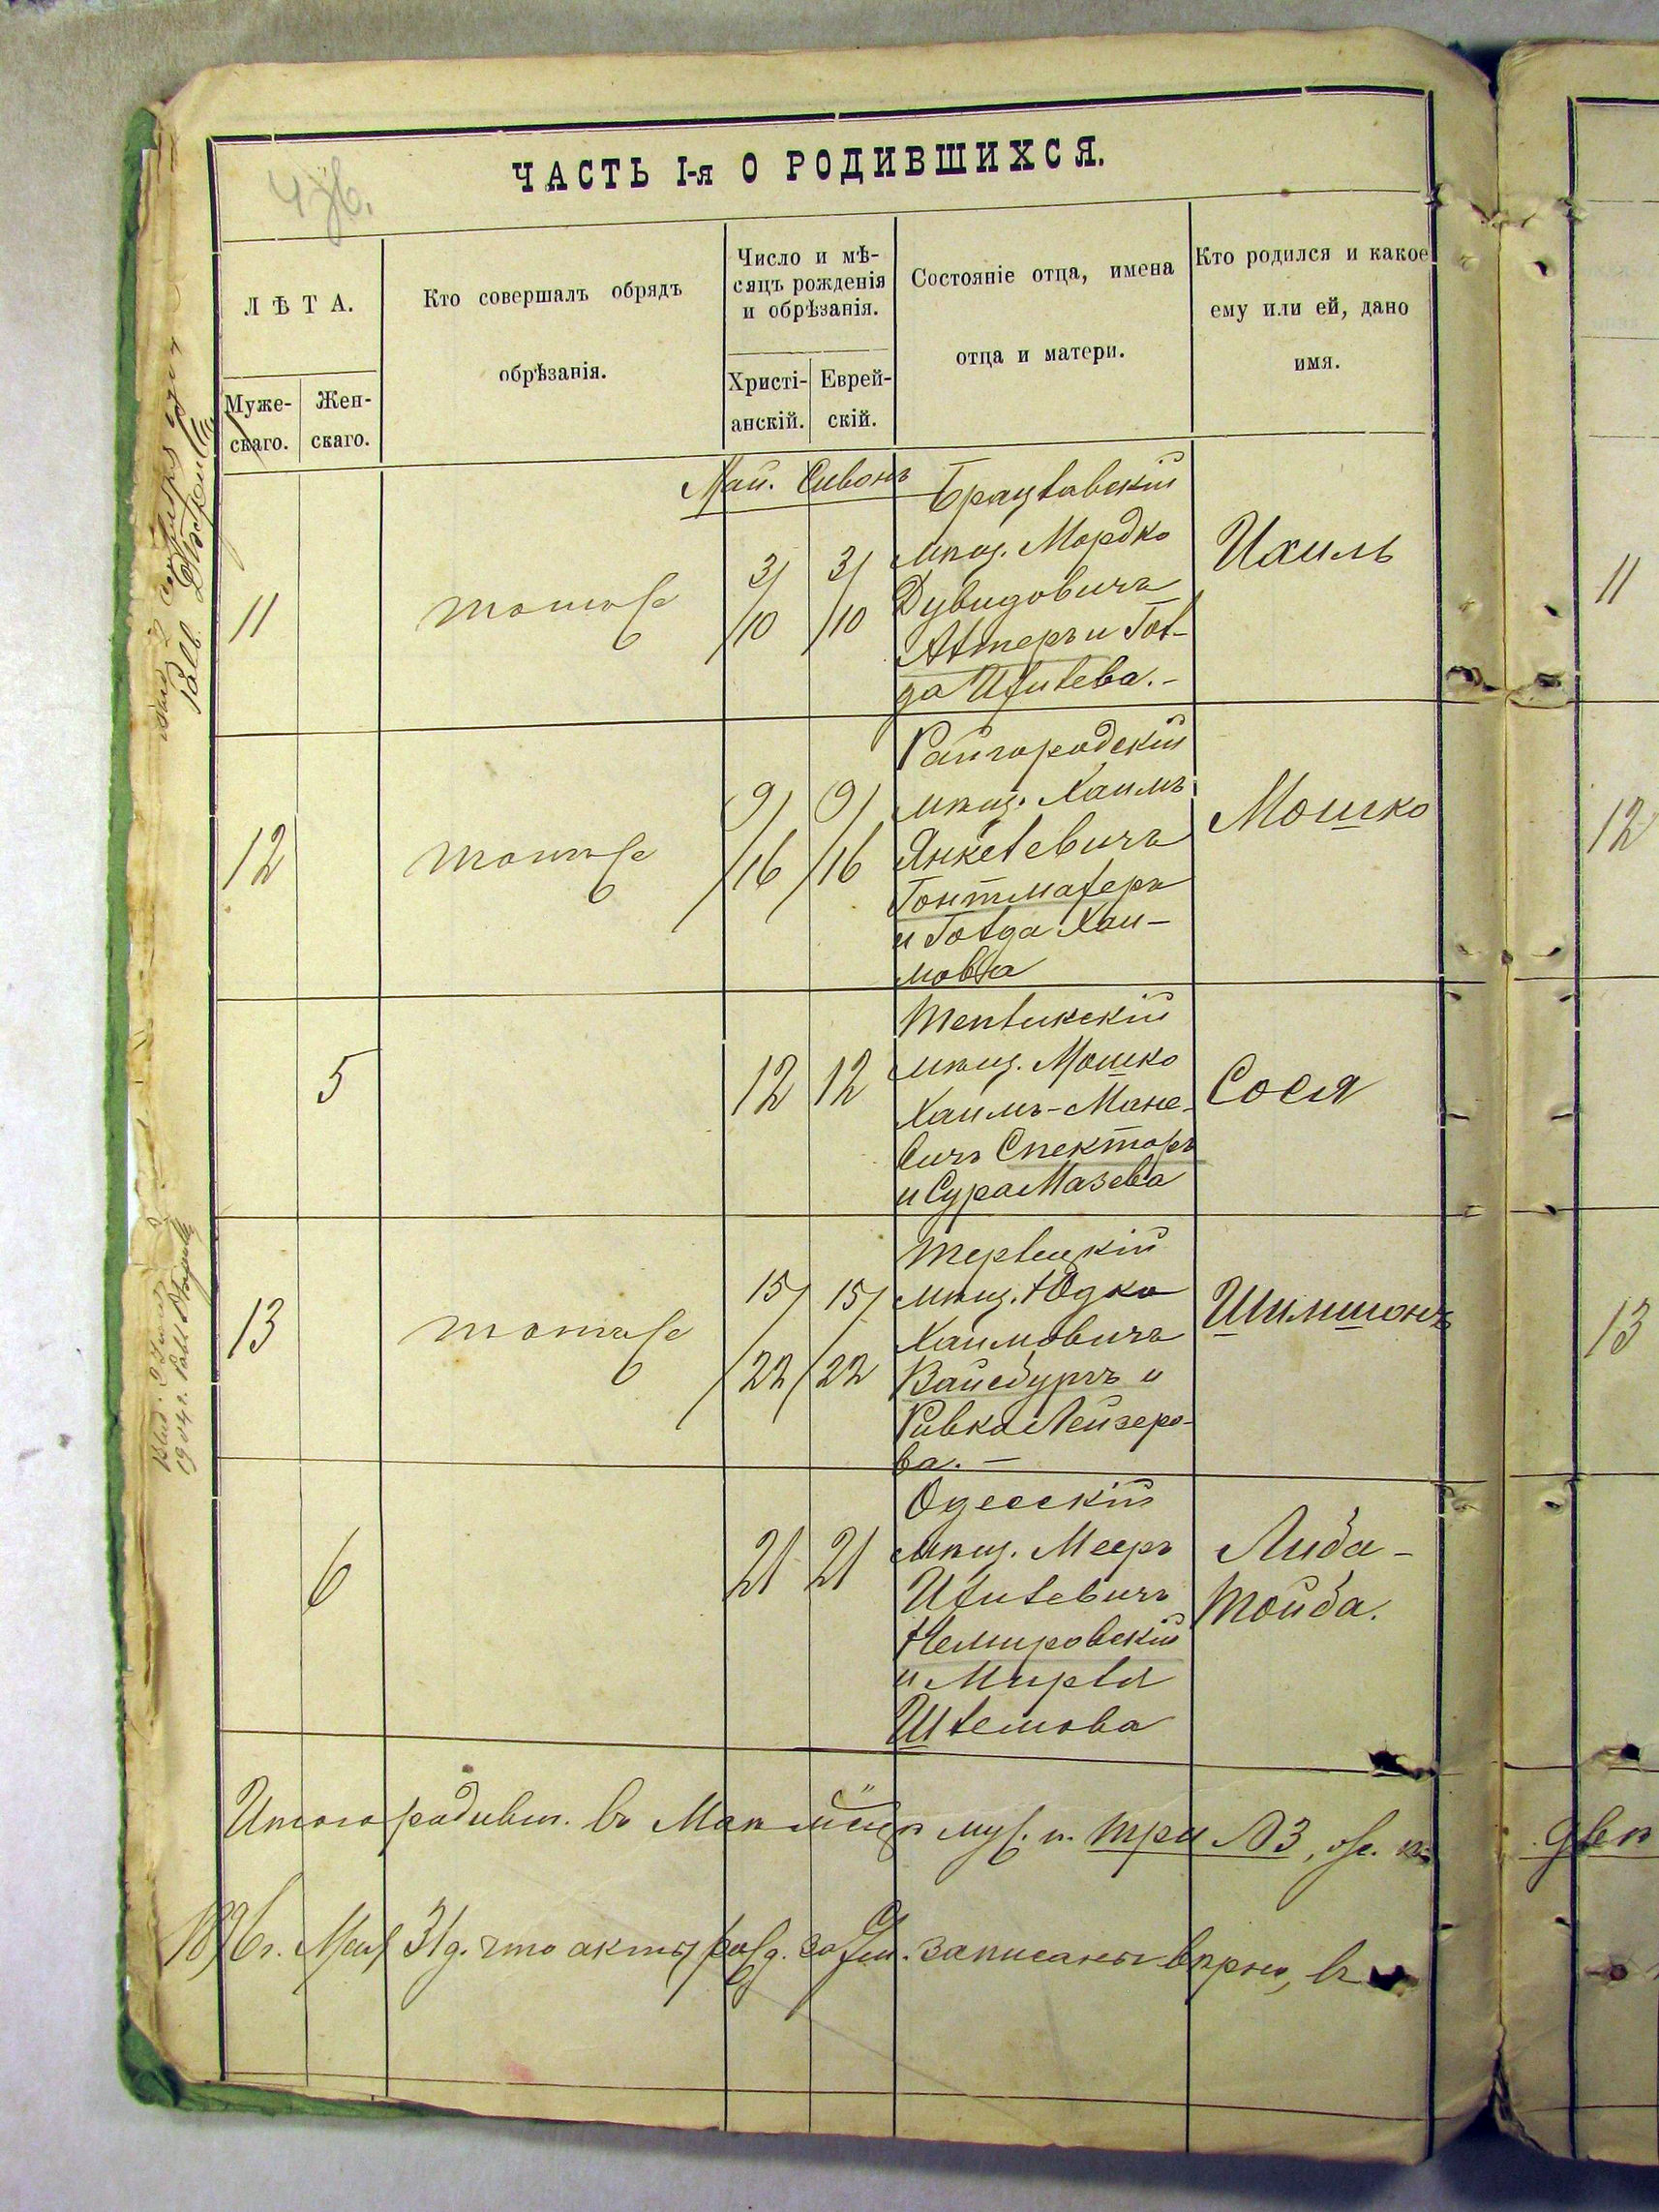 ЧАСТЬ I-я О РОДИВШИХСЯ.
ЛѢТА.
Муже-
скаго.
Жен-
скаго.
Кто совершалъ обрядъ
обрѣзанія.
Число и мѣ-
сяцъ рожденія
и обрѣзанія.
Христі-
анскій.
Еврей-
скій.
Состояніе отца, имена
отца и матери.
Кто родился и какое
ему или ей, дано
имя.
Май. Сивонъ
11
тотже
3/10
3/10
Брацлавскій
мѣщ. Мордко
Дувидовичъ
Альтеръ и Гол-
да
Ихиль
11
12
тотже
9/16
9/16
Райгородскій
мѣщ. Хаимъ
Янкелевичъ
Гонтмахеръ
и Голда Хаи-
мовна
Мошко
12
5
12
12
Тепликскій
мѣщ. Мошко
Хаимъ-Мане-
вичъ Спекторъ
и Сура
Сося
13
тотже
15/22
15/22
мѣщ. Юдко
Хаимовичъ
Вайсбургъ и
Ривка Лейзеро-
ва. —
Шимшонъ
13
6
21
21
Одесскій
мѣщ. Мееръ
Немировскій
и Мирля
Шлемова
Либа-
Тойба.
Итого родивш. въ Маѣ мѣсяцѣ муж. п. три №3, же. п.
двѣ
1896 г. Мая 31 д. что акты рожд. записаны вѣрно, въ